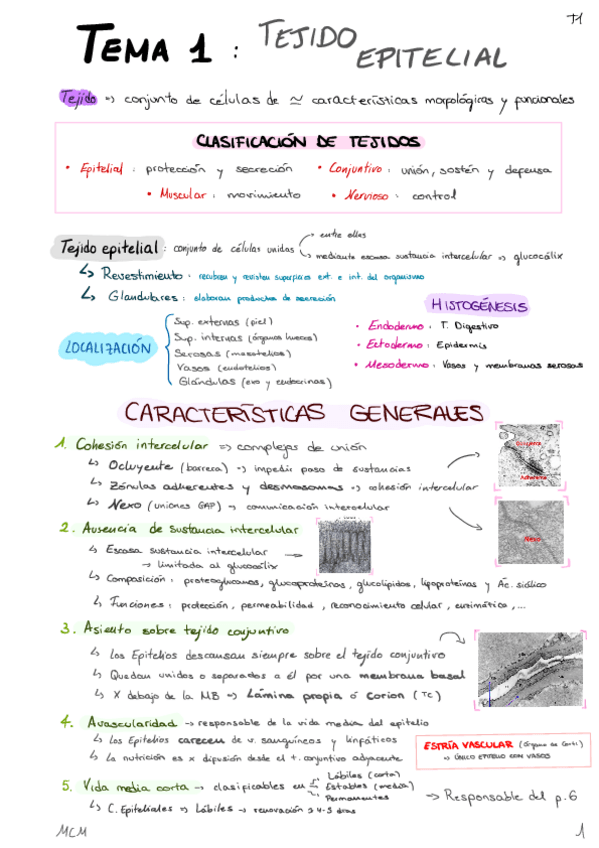 T1
TEMA 1 : TEJIDO EPITELIAL
Tejido => conjunto de células de ≃ características morfológicas y funcionales
CLASIFICACIÓN DE TEJIDOS
• Epitelial : protección y secreción • Conjuntivo : unión, sostén y defensa
• Muscular : movimiento • Nervioso : control
Tejido epitelial : conjunto de células unidas
entre ellas
mediante escasa sustancia intercelular => glucocálix
↳ Revestimiento : recubren y revisten superficies ext. e int. del organismo
↳ Glandulares : elaboran productos de secreción
LOCALIZACIÓN
Sup. externas (piel)
Sup. internas (órganos huecos)
Serosas (mesotelios)
Vasos (endotelios)
Glándulas (exo y endocrinas)
HISTOGÉNESIS
• Endodermo : T. Digestivo
• Ectodermo : Epidermis
• Mesodermo : Vasos y membranas serosas
CARACTERÍSTICAS GENERALES
1. Cohesión intercelular => complejos de unión
↳ Ocluyente (barrera) => impedir paso de sustancias
↳ Zónulas adherentes y desmosomas => cohesión intercelular
↳ Nexo (uniones GAP) → comunicación intercelular
Adherente
Nexo
2. Ausencia de sustancia intercelular
↳ Escasa sustancia intercelular
↳ limitada al glucocálix
↳ Composición : proteoglucanos, glucoproteínas, glucolípidos, lipoproteínas y Ác. siálico
↳ Funciones : protección, permeabilidad, reconocimiento celular, enzimática, ...
3. Asiento sobre tejido conjuntivo
↳ Los Epitelios descansan siempre sobre el tejido conjuntivo
↳ Quedan unidos o separados a él por una membrana basal
↳ X debajo de la MB => Lámina propia ó Corion (TC)
4. Avascularidad → responsable de la vida media del epitelio
↳ Los Epitelios carecen de v. sanguíneos y linfáticos
↳ La nutrición es x difusión desde el t. conjuntivo adyacente
ESTRÍA VASCULAR (Órgano de Corti)
=> ÚNICO EPITELIO CON VASOS
5. Vida media corta → clasificables en
Lábiles (corta)
Estables (media)
Permanentes
=> Responsable del p.6
↳ C. Epiteliales => Lábiles → renovación > 4-5 días
MCM
1